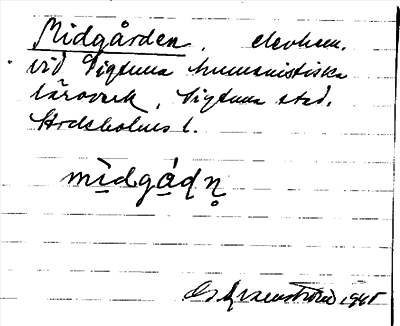 Midgården, elevhem.
vid Sigtuna humanistiska
läroverk, Sigtuna stad.
Stockholms l.
mìdgáḍṇ̥
1945